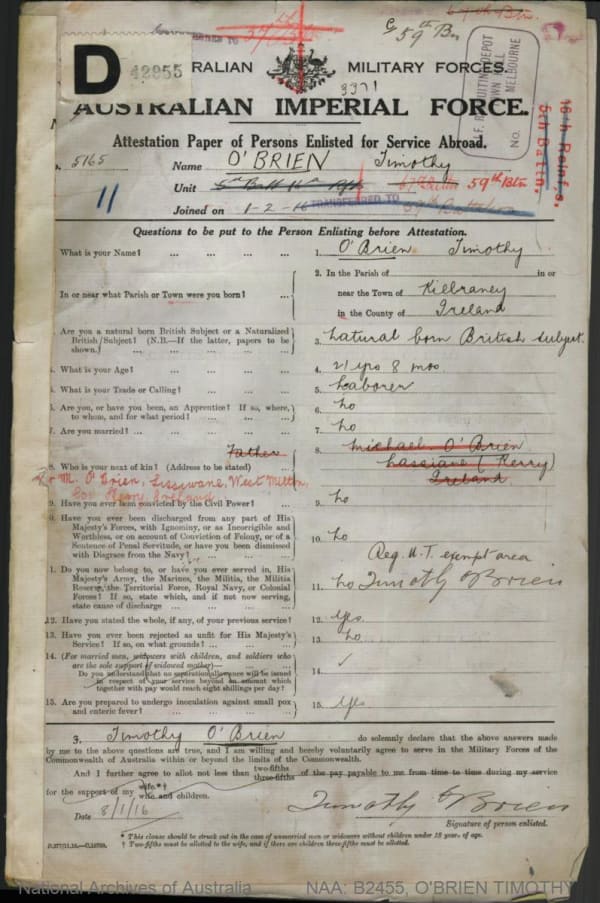 67th Btn.
C 59th Bn
D
42955
RALIAN MILITARY FORCES.
3371
AUSTRALIAN IMPERIAL FORCE.
A.I.F. RECRUITING DEPOT
TOWN HALL
MELBOURNE
No.
16th Reinf,s.
5th Battn.
Attestation Paper of Persons Enlisted for Service Abroad.
5165 Name O'BRIEN Timothy
11 Unit 5th Batt 16th Rfts 67 Battn 59th Btn
Joined on 1-2-16 TRANSFERRED TO 59th Battalion
Questions to be put to the Person Enlisting before Attestation.
What is your Name? ... ... ... ... 1. O'Brien Timothy
In or near what Parish or Town were you born? ... 2. In the Parish of in or
near the Town of Killraney
in the County of Ireland
Are you a natural born British Subject or a Naturalized
British Subject? (N.B.—If the latter, papers to be
shown.) ... ... ... ... 3. natural born British subject.
What is your Age? ... ... ... ... 4. 21 yrs 8 mos.
What is your Trade or Calling? ... ... ... 5. Laborer
Are you, or have you been, an Apprentice? If so, where,
to whom, and for what period? ... ... ... 6. no
7. Are you married? ... ... ... ... 7. no
Father
8. Who is your next of kin? (Address to be stated) ... 8. Michael O'Brien
Lassiane (Kerry)
Ireland
M. O'Brien, Lissivane, West Milton,
Co. Kerry, Ireland
9. Have you ever been convicted by the Civil Power? ... 9. no
Have you ever been discharged from any part of His
Majesty's Forces, with Ignominy, or as Incorrigible and
Worthless, or on account of Conviction of Felony, or of a
Sentence of Penal Servitude, or have you been dismissed
with Disgrace from the Navy? ... 10. no
Reg. U.T. exempt area
Do you now belong to, or have you ever served in, His
Majesty's Army, the Marines, the Militia, the Militia
Reserve, the Territorial Force, Royal Navy, or Colonial
Forces? If so, state which, and if not now serving,
state cause of discharge ... ... ... 11. no Timothy O'Brien
12. Have you stated the whole, if any, of your previous service? 12. Yes.
13. Have you ever been rejected as unfit for His Majesty's
Service? If so, on what grounds? ... ... ... 13. no
14. (For married men, widowers with children, and soldiers who
are the sole support of widowed mother)— ... ...
Do you understand that no separation allowance will be issued
in respect of your service beyond an amount which
together with pay would reach eight shillings per day? 14. ✓
15. Are you prepared to undergo inoculation against small pox
and enteric fever? ... ... ... ... 15. Yes
3, Timothy O'Brien do solemnly declare that the above answers made
by me to the above questions are true, and I am willing and hereby voluntarily agree to serve in the Military Forces of the
Commonwealth of Australia within or beyond the limits of the Commonwealth.
And I further agree to allot not less than two-fifths three-fifths of the pay payable to me from time to time during my service
for the support of my wife.*† wife and children.
Date 8/1/16 Timothy O'Brien
Signature of person enlisted.
* This clause should be struck out in the case of unmarried men or widowers without children under 18 years of age.
† Two-fifths must be allotted to the wife, and if there are children three-fifths must be allotted.
National Archives of Australia NAA: B2455, O'BRIEN TIMOTHY